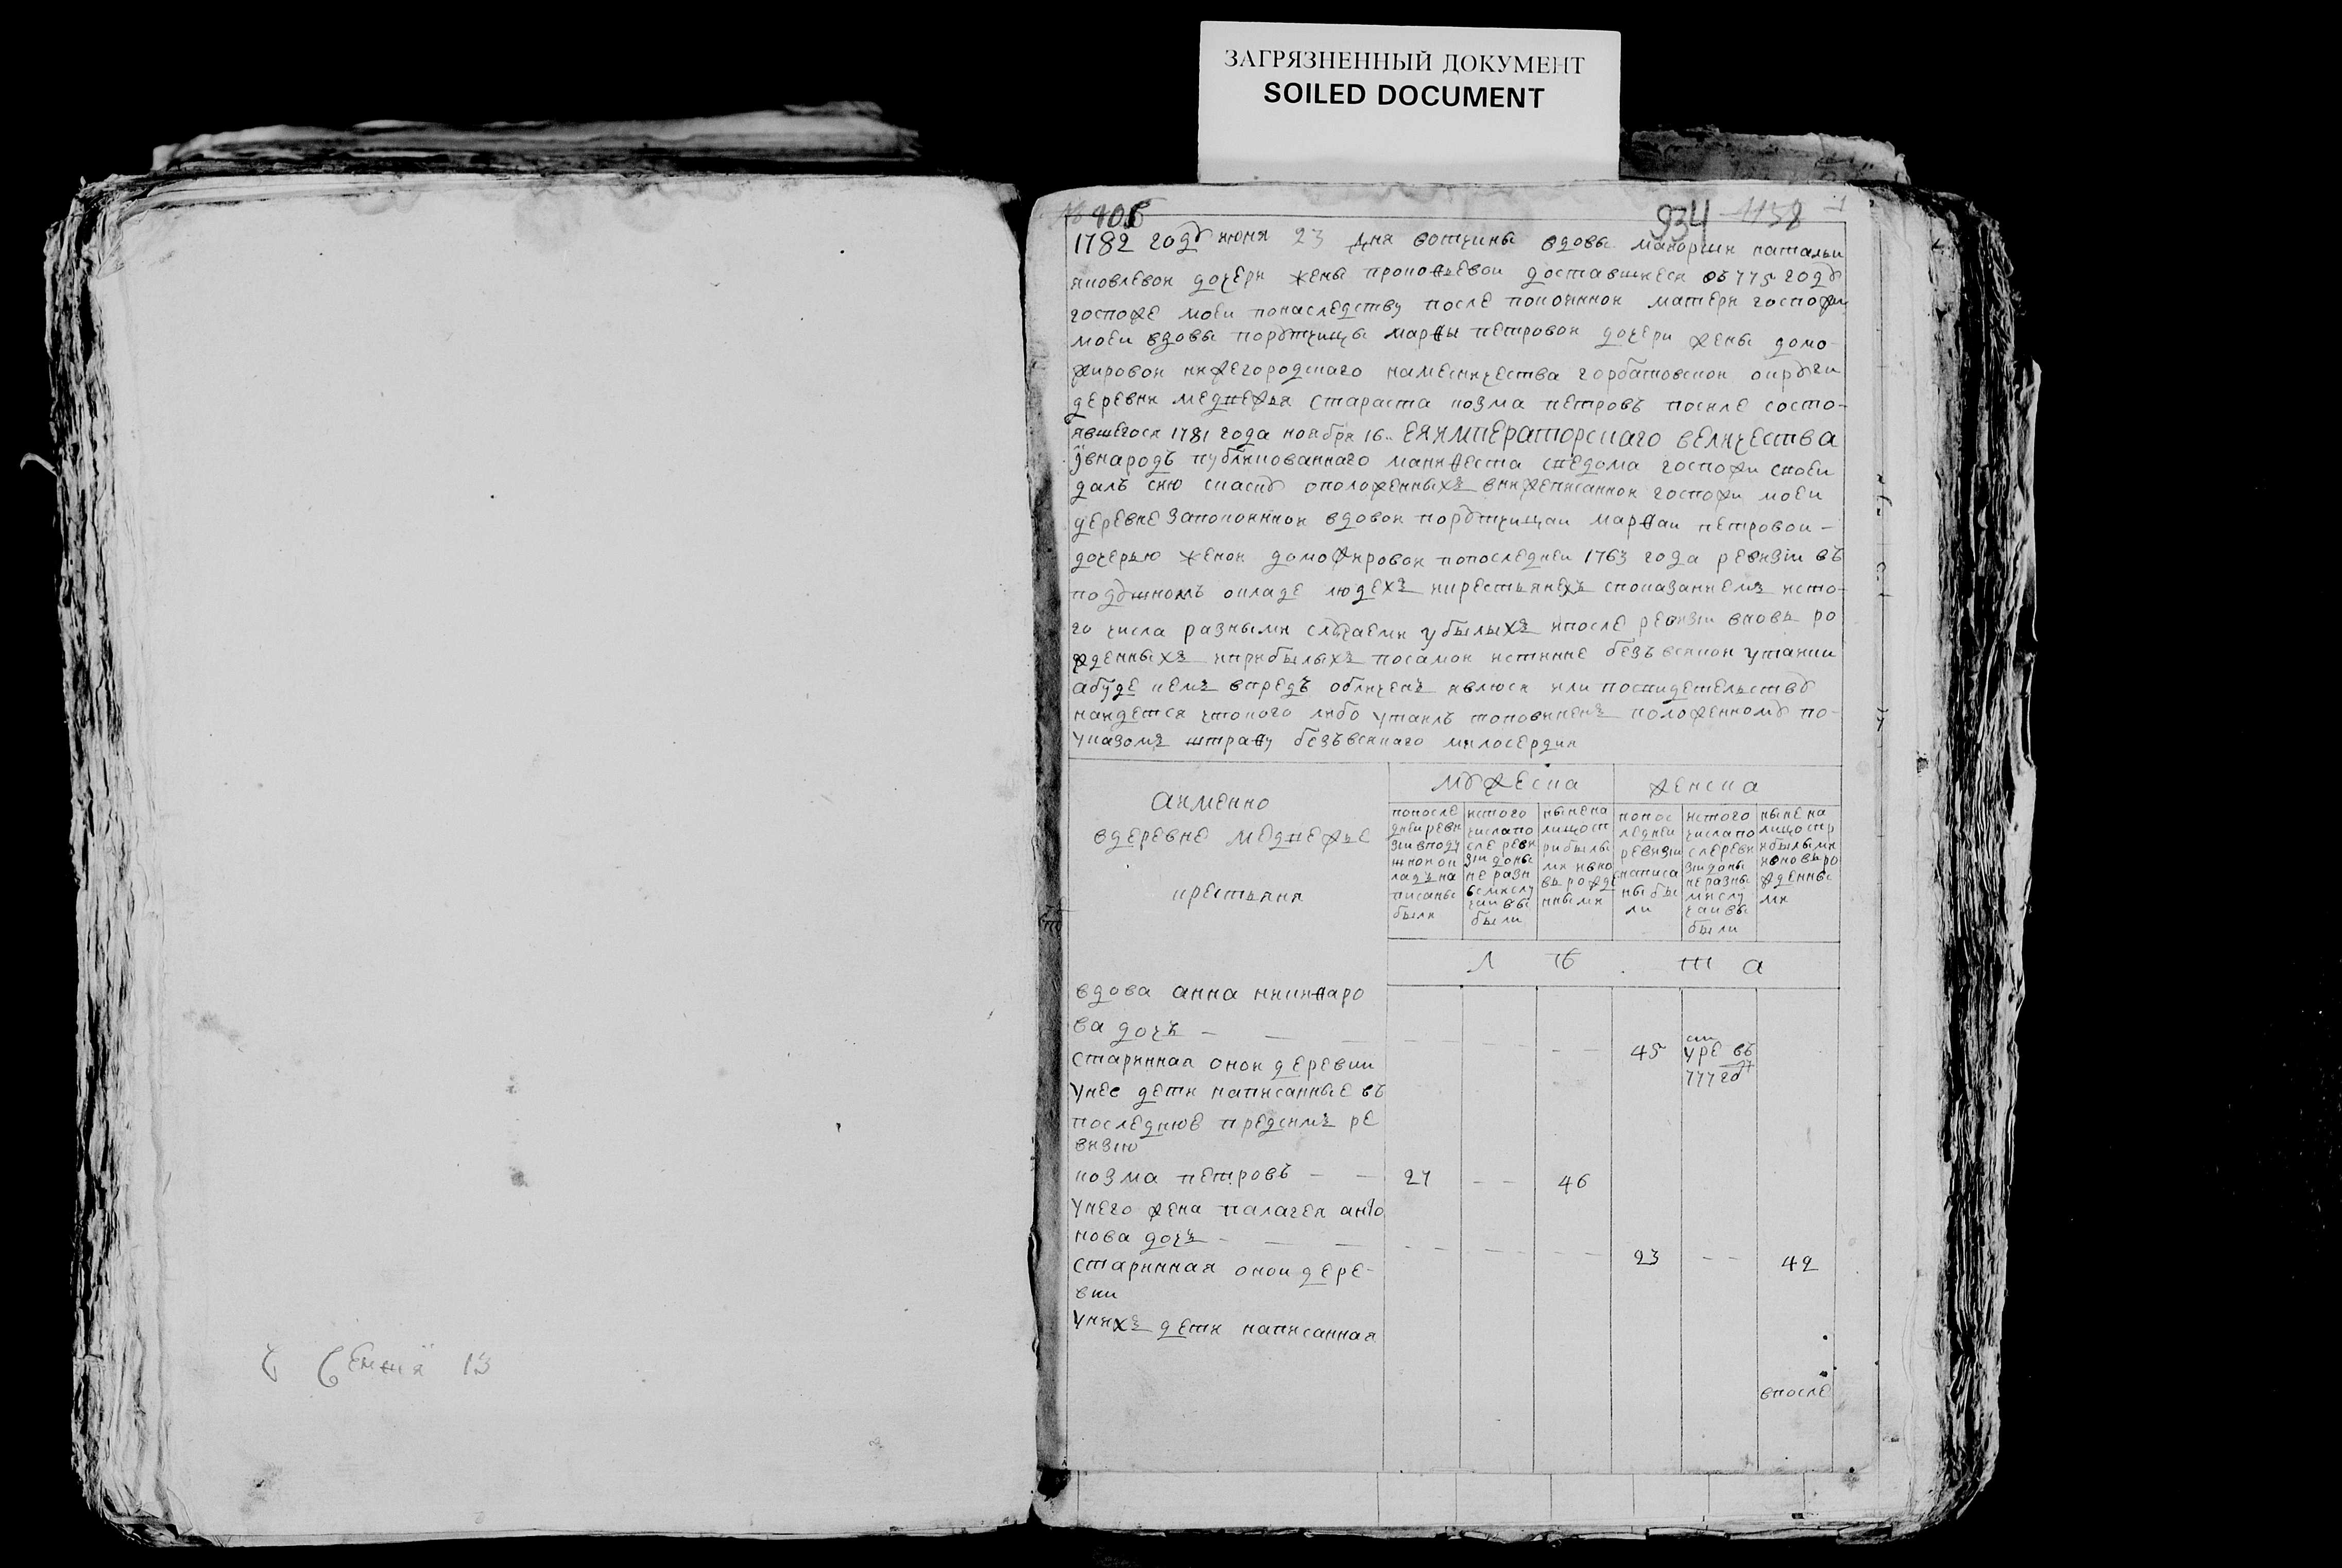 ЗАГРЯЗНЕННЫЙ ДОКУМЕНТ
SOILED DOCUMENT
934 1138
1782 году июня 23 дня вотчины вдовы маиорши натальи
яковлевои дочери жены прокофьевои доставшиеся в 775 году
госпоже моеи понаследству после покоинои матери госпожи
моеи вдовы порутчицы марфы петровои дочери жены домо-
жировои нижегородскаго намесничества горбатовскои округи
деревни меднежья стараста козма петровъ после состо-
явшегося 1781 года ноября 16 ЕЯ ИМПЕРАТОРСКАГО величества
внародъ публикованнаго манифеста сведома госпожи своеи
далъ сию скаску оположенныхъ внижеписаннои госпожи моеи
деревне запокоинои вдовои порутчицаи марфаи петровои-
дочерью женои доможировои попоследнеи 1763 года ревизии въ
подушномъ окладе людехъ икрестьянехъ споказаниемъ исто-
го числа разными случаеми убылыхъ ипосле ревизии вновь ро
жденныхъ иприбылыхъ посамои истинне безъ всякои утаики
абуде кемъ впредъ обличенъ явлюся или посвидетельству
наидется чтокого либо утаилъ топовиненъ положенному по-
указомъ штрафу безъвсякаго милосердия
Аимянно
вдеревне меднежье
крестьяня
мужеска женска
попосле днеи ревизии вподушнои окладъ написаны были
истого числа после ревизии доныне разными случаи выбыли
ныне налицо сприбылыми ивновь рожденными
попоследнеи ревизии написаны были
истого числа после ревизии доныне разными случаи выбыли
ныне налицо сприбылыми ивновь рожденными
Л Ѣ Т а
вдова анна никифаро
ва дочь - - - 45 умре въ
777 году
старинная онои деревни
унее дети написанные въ
последнюю предсимъ ре
визию
козма петровъ - - 27 - - 46
унего жена палагея анто
нова дочь - - - 23 - - 42
старинная онои дере-
вни
унихъ дети написанная
впосле